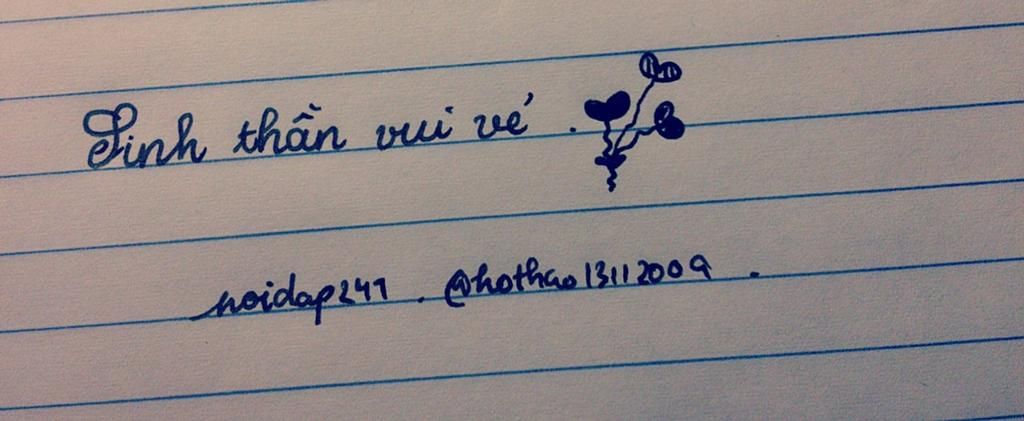 Tinh thần vui vẻ .
hoidap247 . @hothao13112009 .